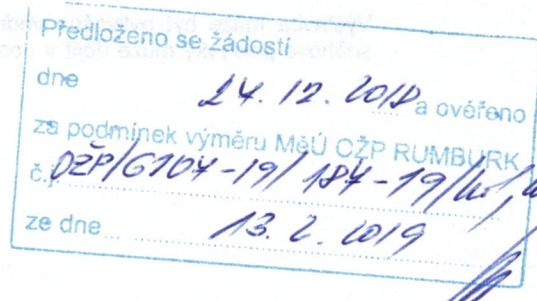 Předloženo se žádostí
dne 24. 12. 2018 a ověřeno
za podmínek výměru MěÚ OŽP RUMBURK
č.j. OŽP/6104-19/184-19/
ze dne 13. 2. 2019